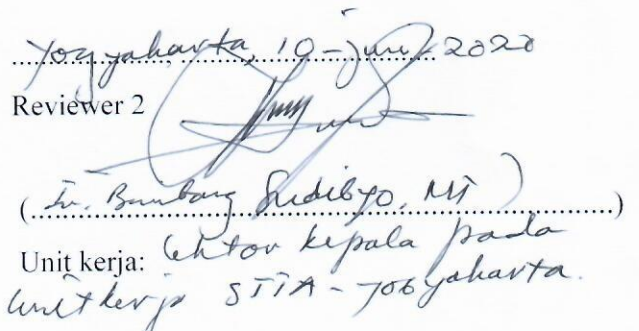 Yogyakarta, 10-Juni 2020
Reviewer 2
(Ir. Bambang Sudibyo, MT)
Unit kerja: Lektor kepala pada
unit kerja STTA - Yogyakarta.